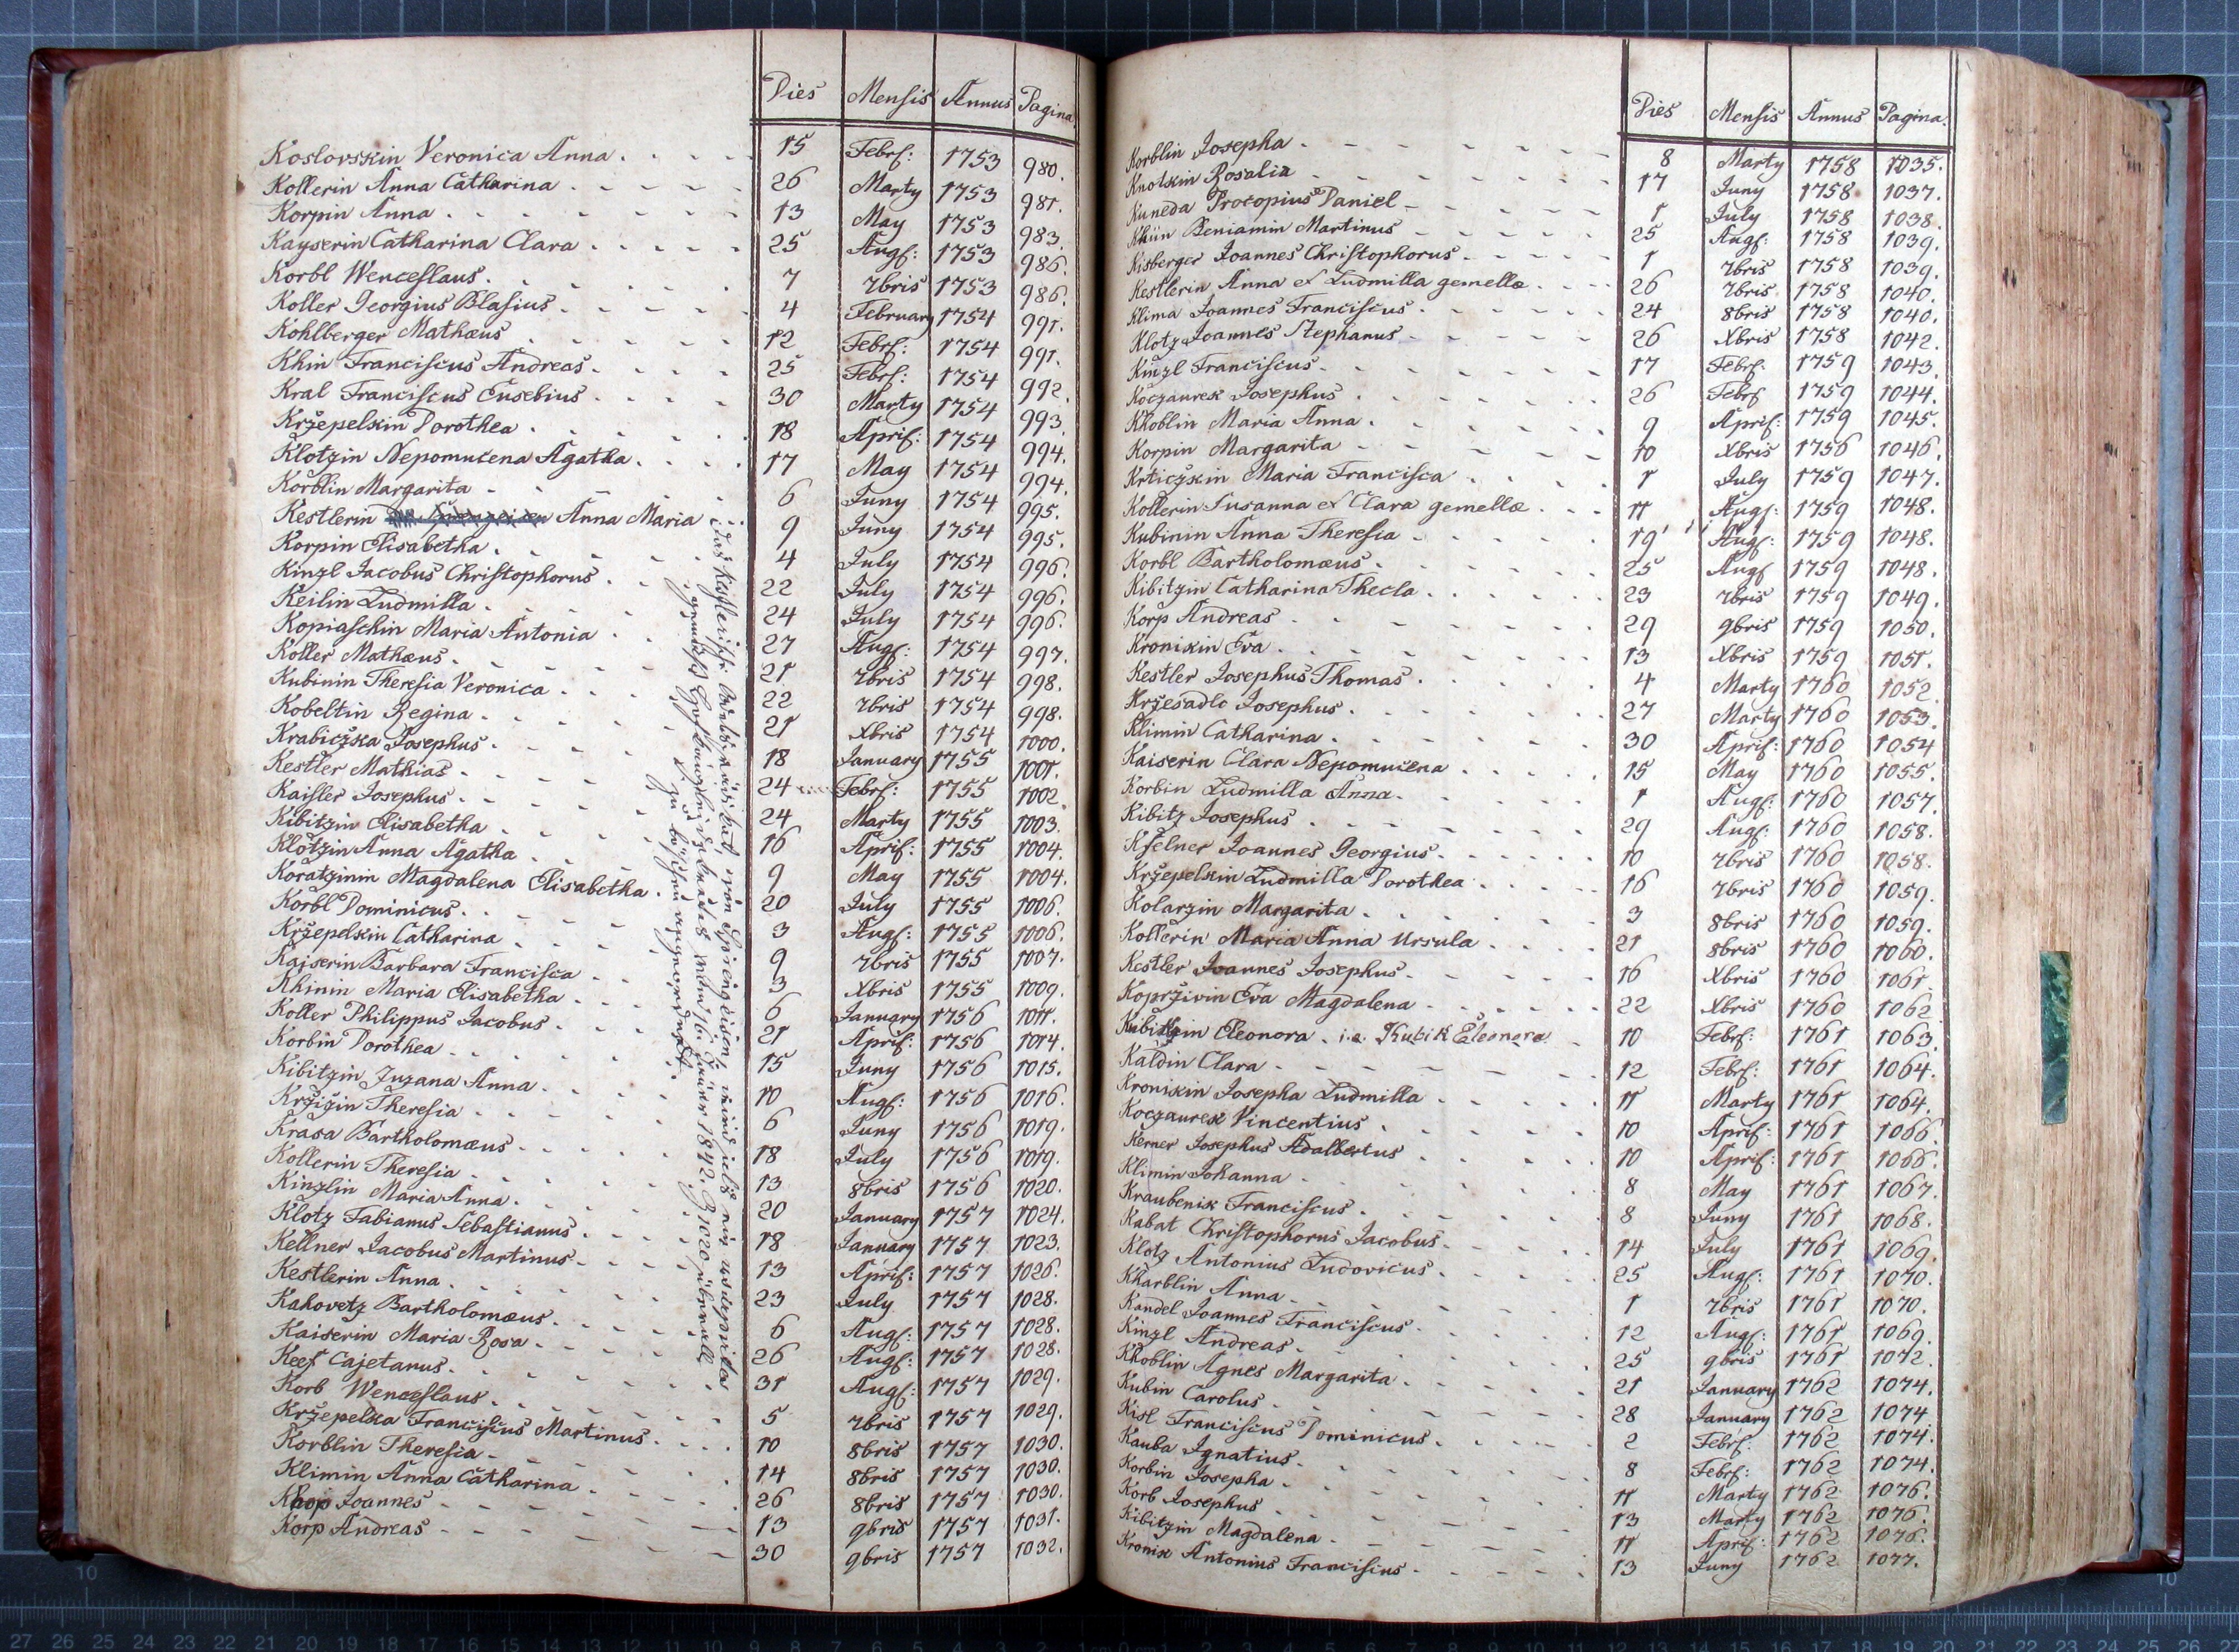 Dies Mensis Annus Pagina.
Koslovskin Veronica Anna. 15 Febr: 1753 980.
Kollerin Anna Catharina 26 Marty 1753 981.
Korpin Anna. 13 May 1753 983.
Kayserin Catharina Clara. 25 Aug: 1753 986.
Korbl Wenceslaus. 7 7bris 1753 986.
Koller Georgius Blasius. 4 February 1754 991.
Kohlberger Mathæus 12 Febr: 1754 991.
Khin Franciscus Andreas. 25 Febr: 1754 992.
Kral Franciscus Eusebius 30 Marty 1754 993.
Kržepelskin Dorothea. 18 April: 1754 994.
Klotzin Nepomucena Agatha. 17 May 1754 994.
Korblin Margarita 6 Juny 1754 995.
Kestlerin Anna Maria 9 Juny 1754 995.
Korpin Elisabetha. 4 July 1754 996.
Kinzl Jacobus Christophorus. 22 July 1754 996.
Keilin Ludmilla. 24 July 1754 996.
Kopiaschin Maria Antonia 27 Aug: 1754 997.
Koller Mathæus. 21 7bris 1754 998.
Kubinin Theresia Veronica 22 7bris 1754 998.
Kobeltin Regina. 21 Xbris 1754 1000.
Krabiczka Josephus. 18 January 1755 1001.
Kestler Mathias 24 Febr: 1755 1002.
Kaisler Josephus. 24 Marty 1755 1003.
Kibitzin Elisabetha 16 April: 1755 1004.
Klotzin Anna Agatha 9 May 1755 1004.
Koratzinin Magdalena Elisabetha. 20 July 1755 1006.
Korbl Dominicus. 3 Aug: 1755 1006.
Kržepelskin Catharina 9 7bris 1755 1007.
Kaiserin Barbara Francisca 3 Xbris 1755 1009.
Khinin Maria Elisabetha 6 January 1756 1011.
Koller Philippus Jacobus. 21 April: 1756 1014.
Korbin Dorothea. 15 Juny 1756 1015.
Kibitzin Zuzana Anna. 10 Aug: 1756 1016.
Kržižin Theresia 6 Juny 1756 1019.
Krasa Bartholomæus 18 July 1756 1019.
Kollerin Theresia 13 8bris 1756 1020.
Kinzlin Maria Anna. 20 January 1757 1024.
Klotz Fabianus Sebastianus. 18 January 1757 1023.
Kellner Jacobus Martinus 13 April: 1757 1026.
Kestlerin Anna. 23 July 1757 1028.
Kakovetz Bartholomæus. 6 Aug: 1757 1028.
Kaiserin Maria Rosa. 26 Aug: 1757 1028.
Keef Cajetanus. 31 Aug: 1757 1029.
Korb Wenceslaus. 5 7bris 1757 1029.
Kržepelka Franciscus Martinus. 10 8bris 1757 1030.
Korblin Theresia 14 8bris 1757 1030.
Klimin Anna Catharina 26 8bris 1757 1030.
Khop Joannes 13 9bris 1757 1031.
Korp Andreas 30 9bris 1757 1032.
1842.
Dies Mensis Annus Pagina.
Korblin Josepha. 8 Marty 1758 1035.
Knotskin Rosalia 17 Juny 1758 1037.
Kuneda Procopius Daniel 1 July 1758 1038.
Khün Beniamin Martinus 25 Aug: 1758 1039.
Kisberger Joannes Christophorus. 1 7bris 1758 1039.
Kestlerin Anna et Ludmilla gemellæ. 26 7bris 1758 1040.
Klima Joannes Franciscus. 24 8bris 1758 1040.
Klotz Joannes Stephanus 26 Xbris 1758 1042.
Kinzl Franciscus. 17 Febr: 1759 1043.
Koczaurek Josephus 26 Febr 1759 1044.
Khoblin Maria Anna. 9 April: 1759 1045.
Korpin Margarita 10 Xbris 1756 1046.
Krticzkin Maria Francisca 1 July 1759 1047.
Kollerin Susanna et Clara gemellæ. 11 Aug: 1759 1048.
Kubinin Anna Theresia 19 Aug: 1759 1048.
Korbl Bartholomæus. 25 Aug 1759 1048.
Kibitzin Catharina Thecla. 23 7bris 1759 1049.
Korp Andreas 29 9bris 1759 1050.
Kroniskin Eva. 13 Xbris 1759 1051.
Kestler Josephus Thomas. 4 Marty 1760 1052
Kržesadlo Josephus. 27 Marty 1760 1053.
Klimin Catharina. 30 April: 1760 1054
Kaiserin Clara Nepomucena 15 May 1760 1055.
Korbin Ludmilla Anna. 1 Aug: 1760 1057.
Kibitz Josephus 29 Aug: 1760 1058.
Kselner Joannes Georgius. 10 7bris 1760 1058.
Kržepelskin Ludmilla Dorothea 16 7bris 1760 1059.
Kolarzin Margarita. 3 8bris 1760 1059.
Kollerin Maria Anna Ursula 21 8bris 1760 1060.
Kestler Joannes Josephus. 16 Xbris 1760 1061.
Koprživin Eva Magdalena 22 Xbris 1760 1062
Kubitzin Eleonora. i.e. Kubik Eleonora 10 Febr: 1761 1063.
Kaldin Clara 12 Febr: 1761 1064.
Kroniskin Josepha Ludmilla 11 Marty 1761 1064.
Koczaurek Vincentius. 10 April: 1761 1066.
Kerner Josephus Adalbertus 10 April: 1761 1066.
Klimin Johanna 8 May 1761 1067.
Kraubenik Franciscus. 8 Juny 1761 1068.
Kabat Christophorus Jacobus. 14 July 1761 1069.
Klotz Antonius Ludovicus. 25 Aug: 1761 1070.
Kharblin Anna 1 7bris 1761 1070.
Kandel Joannes Franciscus. 12 Aug: 1761 1069.
Kinzl Andreas. 25 9bris 1761 1072.
Khoblin Agnes Margarita. 21 January 1762 1074.
Kubin Carolus. 28 January 1762 1074.
Kisl Franciscus Dominicus. 2 Febr: 1762 1074.
Kauba Ignatius. 8 Febr: 1762 1074.
Korbin Josepha. 11 Marty 1762 1076.
Korb Josephus 13 Marty 1762 1076.
Kibitzin Magdalena 11 April: 1762 1076.
Kronik Antonius Franciscus 13 Juny 1762 1077.